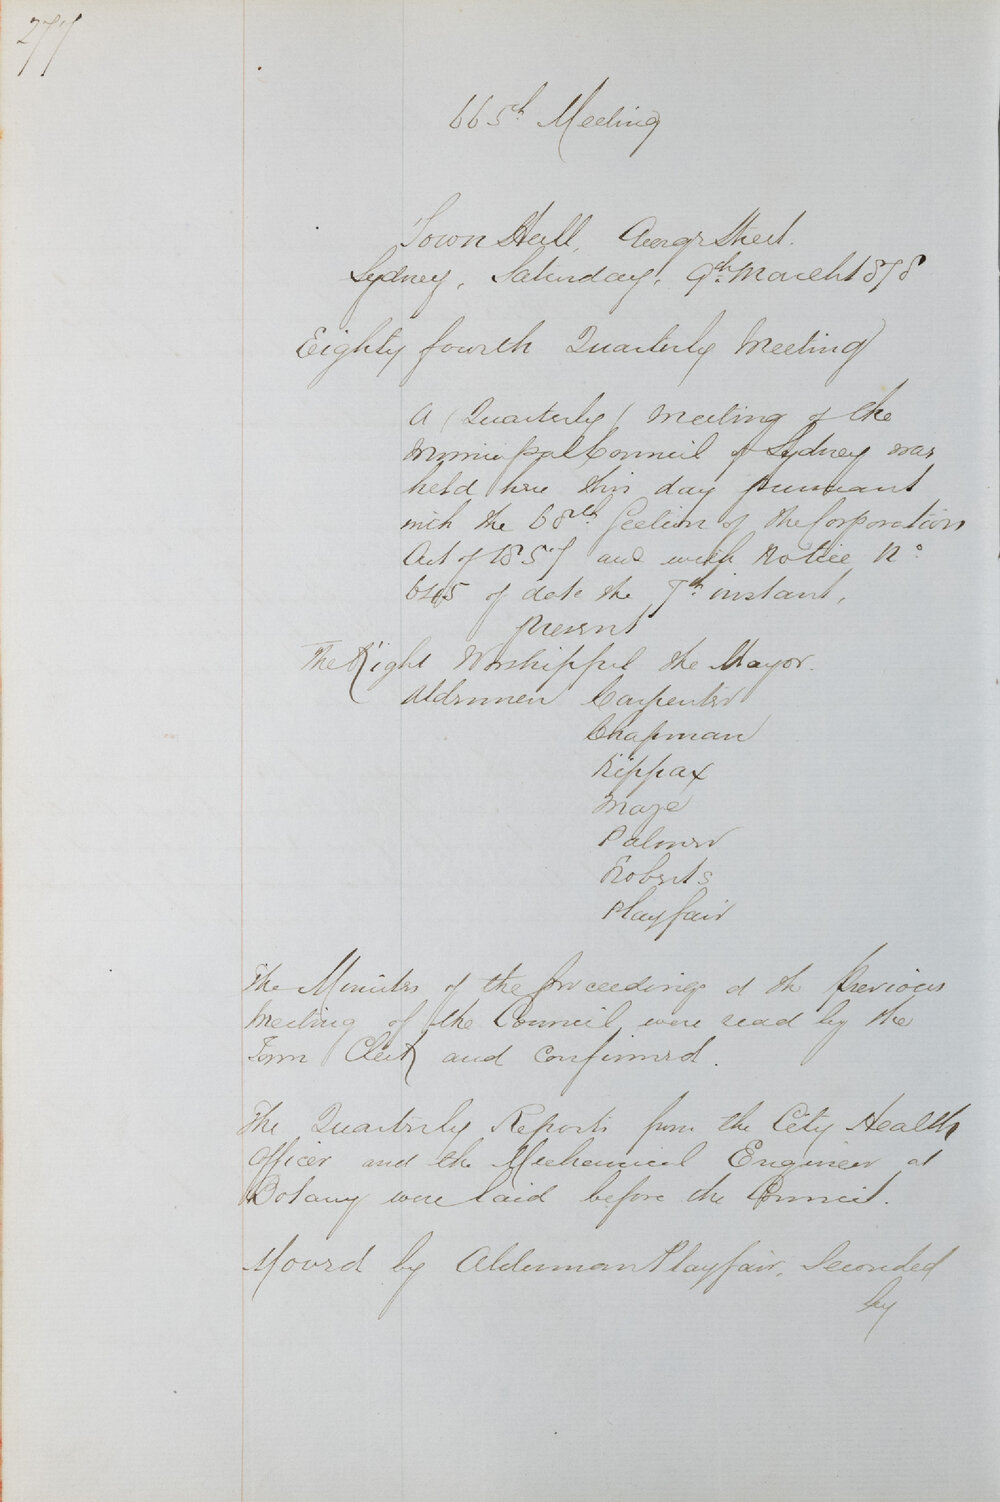 277
665th Meeting
Town Hall, George Street.
Sydney, Saturday, 9th March 1878
Eighty fourth Quarterly Meeting
A (Quarterly) Meeting of the
Municipal Council of Sydney was
held here this day pursuant
with the 68th Section of the Corporation
Act of 1857 and with Notice No
645 of date the 7th instant,
Present
The Right Worshipful the Mayor.
Aldermen Carpenter
Chapman
Kippax
Maze
Palmer
Roberts
Playfair
The Minutes of the proceedings at the previous
Meeting of the Council were read by the
Town Clerk and Confirmed.
The Quarterly Reports from the City Health
Officer and the Mechanical Engineer at
Botany were laid before the Council.
Moved by Alderman Playfair, Seconded
by